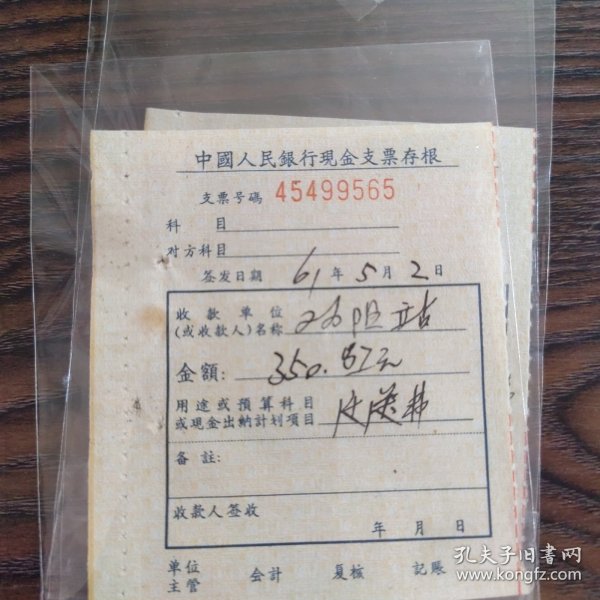 中國人民銀行現金支票存根
支票号碼 45499565
科 目
对方科目
签发日期 61年5月2日
收款单位
(或收款人)名称 站
金額: 350.87元
用途或預算科目
或現金出納計划項目
备註:
收款人签收
年 月 日
单位
主管 会計 复核 記賬
孔夫子旧書网
www.kongfz.com